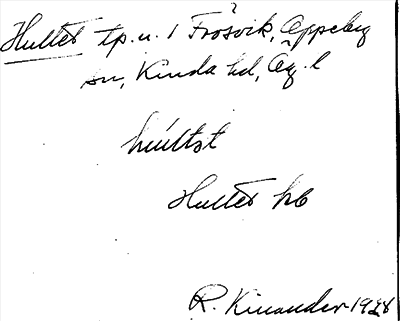 Hultet tp. u. 1 Frösvik, Oppeby
sn, Kinda hd, Ög. l
hultət
Hultet hb
R. Kinander 1928